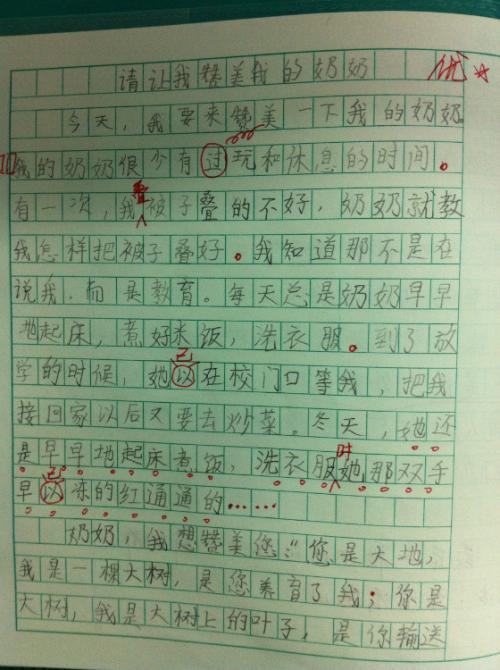 请让我赞美我的奶奶 优
今天，我要来赞美一下我的奶奶。
我的奶奶很少有过玩和休息的时间。
有一次，我叠被子叠的不好，奶奶就教
我怎样把被子叠好。我知道那不是在
说我，而是教育。每天总是奶奶早早
地起床，煮好米饭，洗衣服。到了放
已
学的时候，她以在校门口等我，把我
接回家以后又要去炒菜。冬天，她还
是早早地起床煮饭，洗衣服时她那双手
已
早以冻的红通通的……
奶奶，我想赞美您："您是大地，
我是一棵大树，是您养育了我；你是
大树，我是大树上的叶子，是你输送